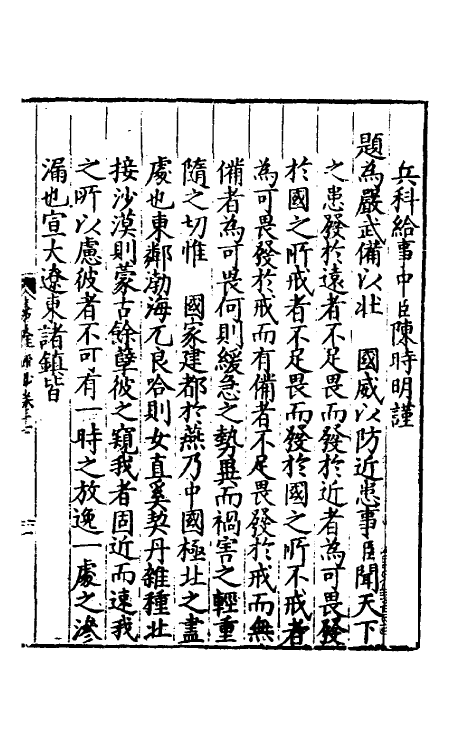 兵科給事中臣陳時明謹
題為嚴武備以壯　國威以防近患事臣聞天下
之患發於遠者不足畏而發於近者為可畏發
於國之所戒者不足畏而發於國之所不戒者
為可畏發於戒而有備者不足畏發於戒而無
備者為可畏何則緩急之勢異而禍害之輕重
隨之切惟　國家建都於燕乃中國極北之盡
處也東鄰渤海兀良哈則女直奚契丹雜種北
接沙漠則蒙古餘孽彼之窺我者固近而速我
之所以慮彼者不可有一時之放逸一處之滲
漏也宣大遼東諸鎮皆